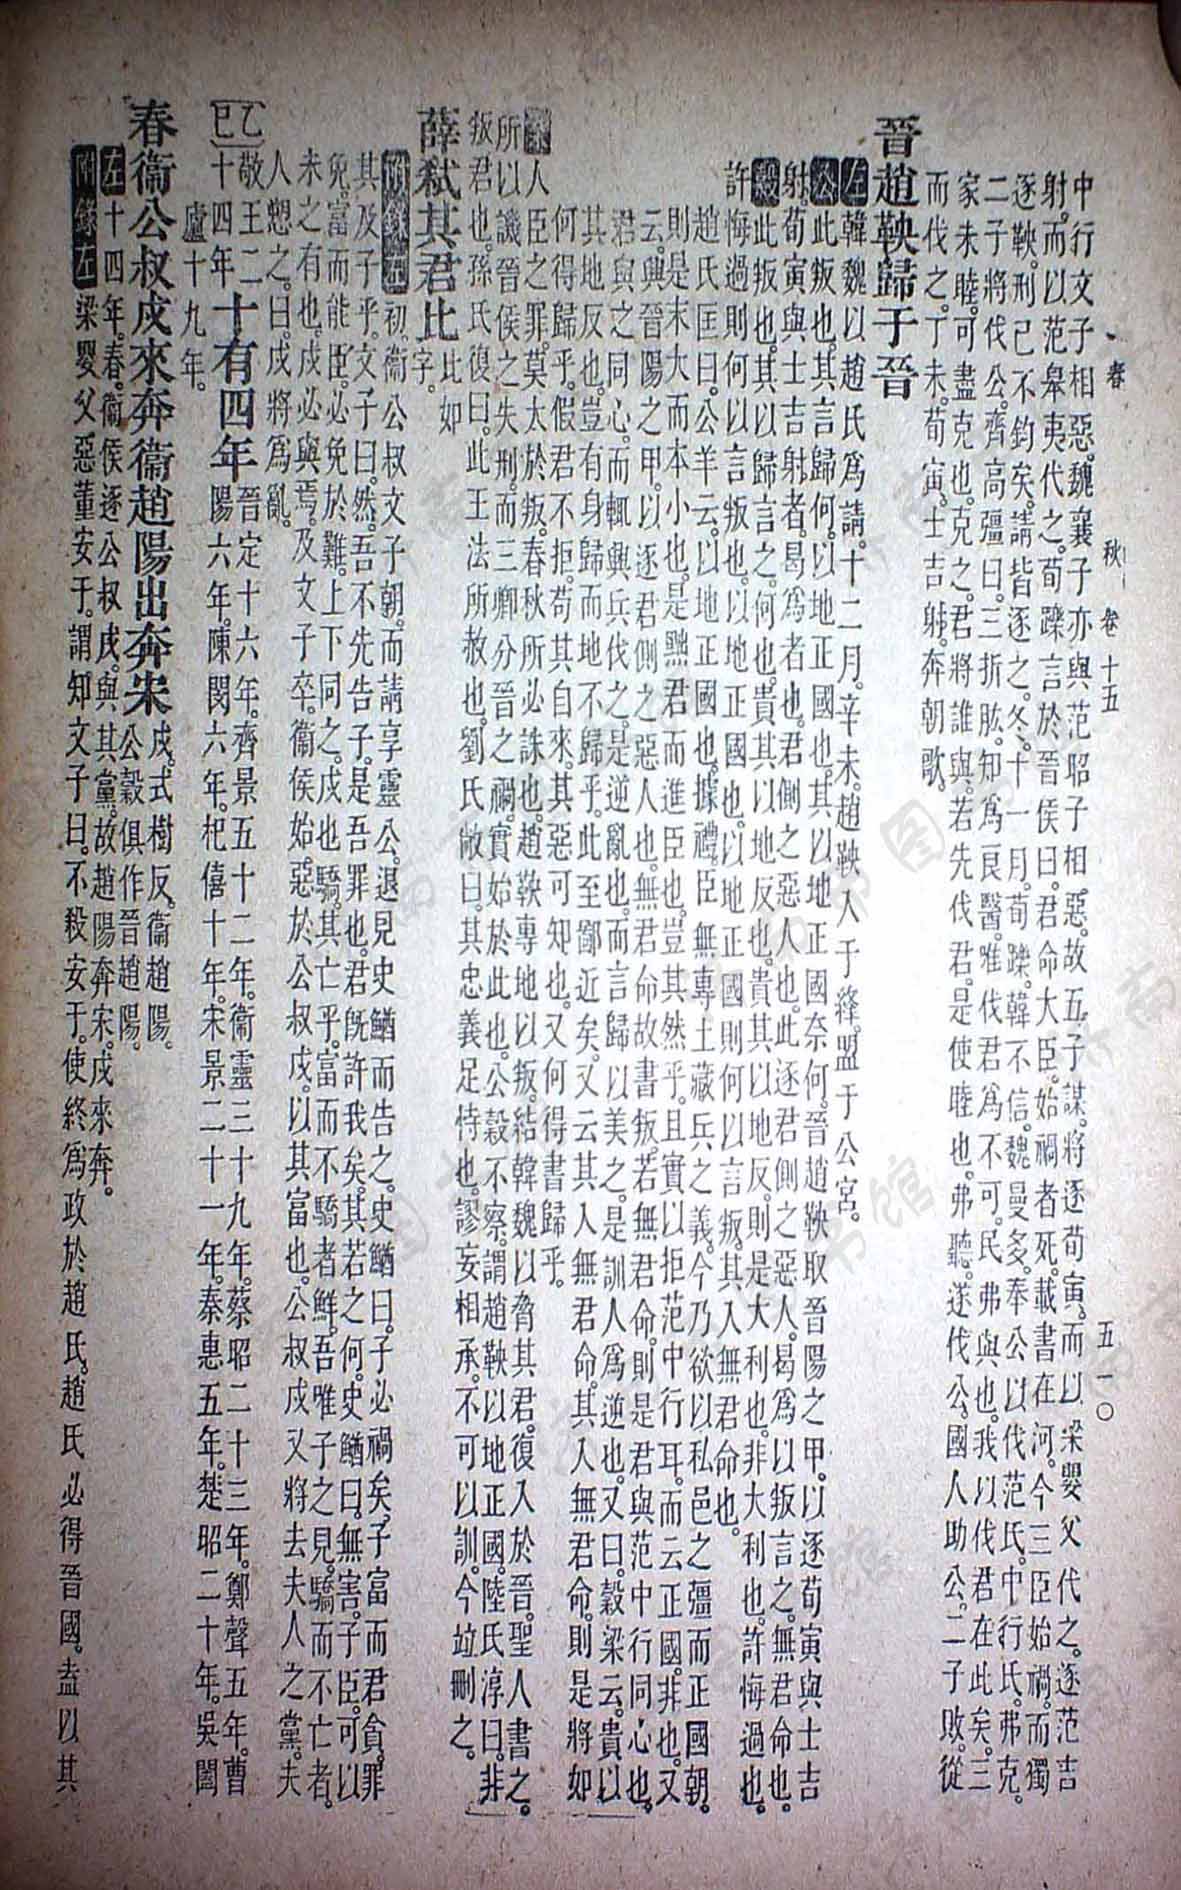 春 秋 卷十五 五一〇
中行文子相惡。魏襄子亦與范昭子相惡。故五子謀。將逐荀寅。而以梁嬰父代之。逐范吉
射。而以范皋夷代之。荀躒言於晉侯曰。君命大臣。始禍者死。載書在河。今三臣始禍。而獨
逐鞅。刑已不鈞矣。請皆逐之。冬。十一月。荀躒。韓不信。魏曼多。奉公以伐范氏。中行氏。弗克。
二子將伐公。齊高彊曰。三折肱。知爲良醫。唯伐君爲不可。民弗與也。我以伐君在此矣。三
家未睦。可盡克也。克之。君將誰與。若先伐君。是使睦也。弗聽。遂伐公。國人助公。二子敗。從
而伐之。丁未。荀寅。士吉射。奔朝歌。
晉趙鞅歸于晉
左韓魏以趙氏爲請。十二月。辛未。趙鞅入于絳。盟于公宮。
公此叛也。其言歸何。以地正國也。其以地正國奈何。晉趙鞅取晉陽之甲。以逐荀寅與士吉
射。荀寅與士吉射者。曷爲者也。君側之惡人也。此逐君側之惡人。曷爲以叛言之。無君命也。
穀此叛也。其以歸言之。何也。貴其以地反也。貴其以地反。則是大利也。非大利也。許悔過也。
許悔過則何以言叛也。以地正國也。以地正國則何以言叛。其入無君命也。
趙氏匡曰。公羊云。以地正國也。據禮。臣無專土藏兵之義。今乃欲以私邑之彊而正國朝。
則是末大而本小也。是黜君而進臣也。豈其然乎。且實以拒范中行耳。而云正國。非也。又
云。興晉陽之甲。以逐君側之惡人也。無君命故書叛。若無君命。則是君與范中行同心也。
君與之同心。而輒興兵伐之。是逆亂也。而言歸以美之。是訓人爲逆也。又曰。穀梁云。貴以
其地反也。豈有身歸而地不歸乎。此至鄙近矣。又云其入無君命。其入無君命。則是將如
何得歸乎。假君不拒。苟其自來。其惡可知也。又何得書歸乎。
人臣之罪。莫太於叛。春秋所必誅也。趙鞅專地以叛。結韓魏以脅其君。復入於晉。聖人書之。
所以譏晉侯之失刑。而三卿分晉之禍。實始於此也。公穀不察。謂趙鞅以地正國。陸氏淳曰。非
叛君也。孫氏復曰。此王法所赦也。劉氏敞曰。其忠義足恃也。謬妄相承。不可以訓。今竝刪之。
薛弑其君比比如字。
附錄左初。衞公叔文子朝。而請享靈公。退見史鰌而告之。史鰌曰。子必禍矣。子富而君貪。罪
其及子乎。文子曰。然。吾不先告子。是吾罪也。君旣許我矣。其若之何。史鰌曰。無害。子臣。可以
免。富而能臣。必免於難。上下同之。戍也驕。其亡乎。富而不驕者鮮。吾唯子之見。驕而不亡者。
未之有也。戍必與焉。及文子卒。衞侯始惡於公叔戍。以其富也。公叔戍又將去夫人之黨。夫
人愬之曰。戍將爲亂。
乙巳敬王二十四年十有四年晉定十六年。齊景五十二年。衞靈三十九年。蔡昭二十三年。鄭聲五年。曹
陽六年。陳閔六年。杞僖十年。宋景二十一年。秦惠五年。楚昭二十年。吳闔
廬十九年。
春衞公叔戍來奔衞趙陽出奔宋戍。式樹反。衞趙陽。公穀俱作晉趙陽。
左十四年。春。衞侯逐公叔戍。與其黨。故趙陽奔宋。戍來奔。
附錄左梁嬰父惡董安于。謂知文子曰。不殺安于。使終爲政於趙氏。趙氏必得晉國。盍以其